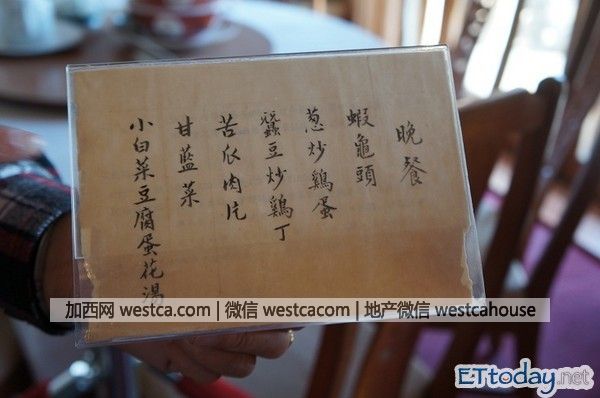 晚餐
蝦龜頭
葱炒鷄蛋
蠶豆炒鷄丁
苦瓜肉片
甘藍菜
小白菜豆腐蛋花湯
加西网 westca.com | 微信 westcacom | 地产微信 westcahouse
ETtoday.net